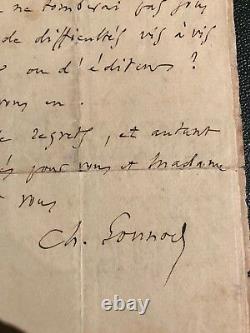 ne tomberai pas plus
de difficultés vis à vis
ou d'éditeurs ?
vous en.
de regrets, et autant
pour vous et Madame
vous
Ch. Gounod